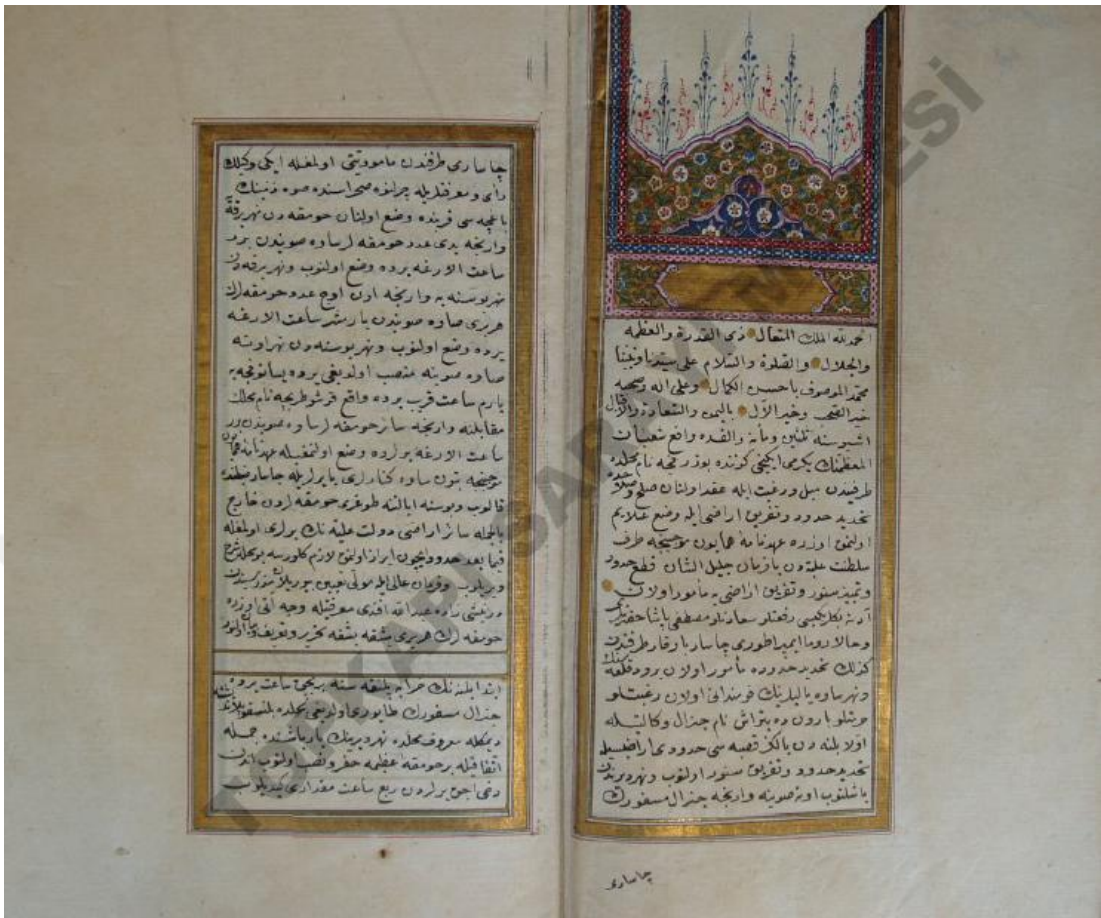 الحمد لله الملك المتعال ذى القدرة والعظمه
والجلال والصلوة والسلام على سيدنا ونبينا
محمد الموصوف باحسن الكمال وعلى اله وصحبه
خير الصحب وخير الآل باليمن والسعادة والاقبال
اشبو سنه ثلثين ومأته والفده واقع شعبان
المعظمك يكرمى ايكنجى كوننده نام محلده
طرفيندن ميل ورغبت ايله عقد اولنان صلح وصلاحده
تحديد حدود وتفريق اراضى ايله وضع علايم
اولنمق اوزره عهدنامه همايون موجبنجه طرف
سلطنت عليه دن بافرمان جليل الشان قطع حدود
وتميز سنور وتفريق اراضى يه مأمور اولان
بكلربكيسى رفعتلو سعادتلو مصطفى پاشا حضرتلرينك
وحالا روما ايمپراطورى چاسار باوقار طرفندن
كذلك تحديد حدوده مأمور اولان
ونهر ساوه قومندانى اولان رغبتلو
بارون ده پتراش نام جنرال وكالتيله
اولا بلنه دن قصبه سى حدودى اراضيسيله
تحديد حدود وتفريق سنور اولنوب ونهر
باشلنوب اونه صوينه وارنجه جنرال مسفورك
چاسارى
چاسارى طرفندن مأموريتى اولمغله ايكى وكيلك
رأى ومعرفتلريله صحراسنده
باغچه سى قربنده وضع اولنان حومقه دن نهر
وارنجه يدى عدد حومقه لر ساوه صويندن برر
ساعت الارغه يرده وضع اولنوب ونهر دن
نهر بوسنه يه وارنجه اون اوچ عدد حومقه لرك
هر برى ساوه صويندن يارمشر ساعت الارغه
يرده وضع اولنوب ونهر بوسنه دن نهر اونه
ساوه صوينه منصب اولديغى يرده يه
يارم ساعت قريب يرده واقع نام محلك
مقابلنه وارنجه سائر حومقه لر ساوه صويندن برر
ساعت الارغه يرلرده وضع اولنمغيله عهدنامه همايون
موجبنجه بتون ساوه كنارلرى يرلريله چاسار ضبطنده
قالوب وبوسنه ايالتنه طوغرى حومقه لردن خارج
بالجمله سائر اراضى دولت عليه نك يرلرى اولمغله
فيما بعد حدود ايچون ابراز اولنمق لازم كلورسه بو محلده شرح
ويريلوب وفرمان عالى ايله مولى تعيين بيوريلان
زاده عبد الله افندى معرفتيله وجه آتى اوزره
حومقه لرك هر برى بشقه بشقه تحرير وتوصيف
ابتدا بلنه نك خرابه پلنقه سنه بر بچق ساعت يرده
جنرال مسفورك طابورى اولديغى محلده
ديمكله معروف محلده نهر باشنده جمله
اتفاقيله بر حومقه عظيمه حفر ونصب اولنوب اندن
دخى اچق يرلردن ربع ساعت مقدارى كيديلوب